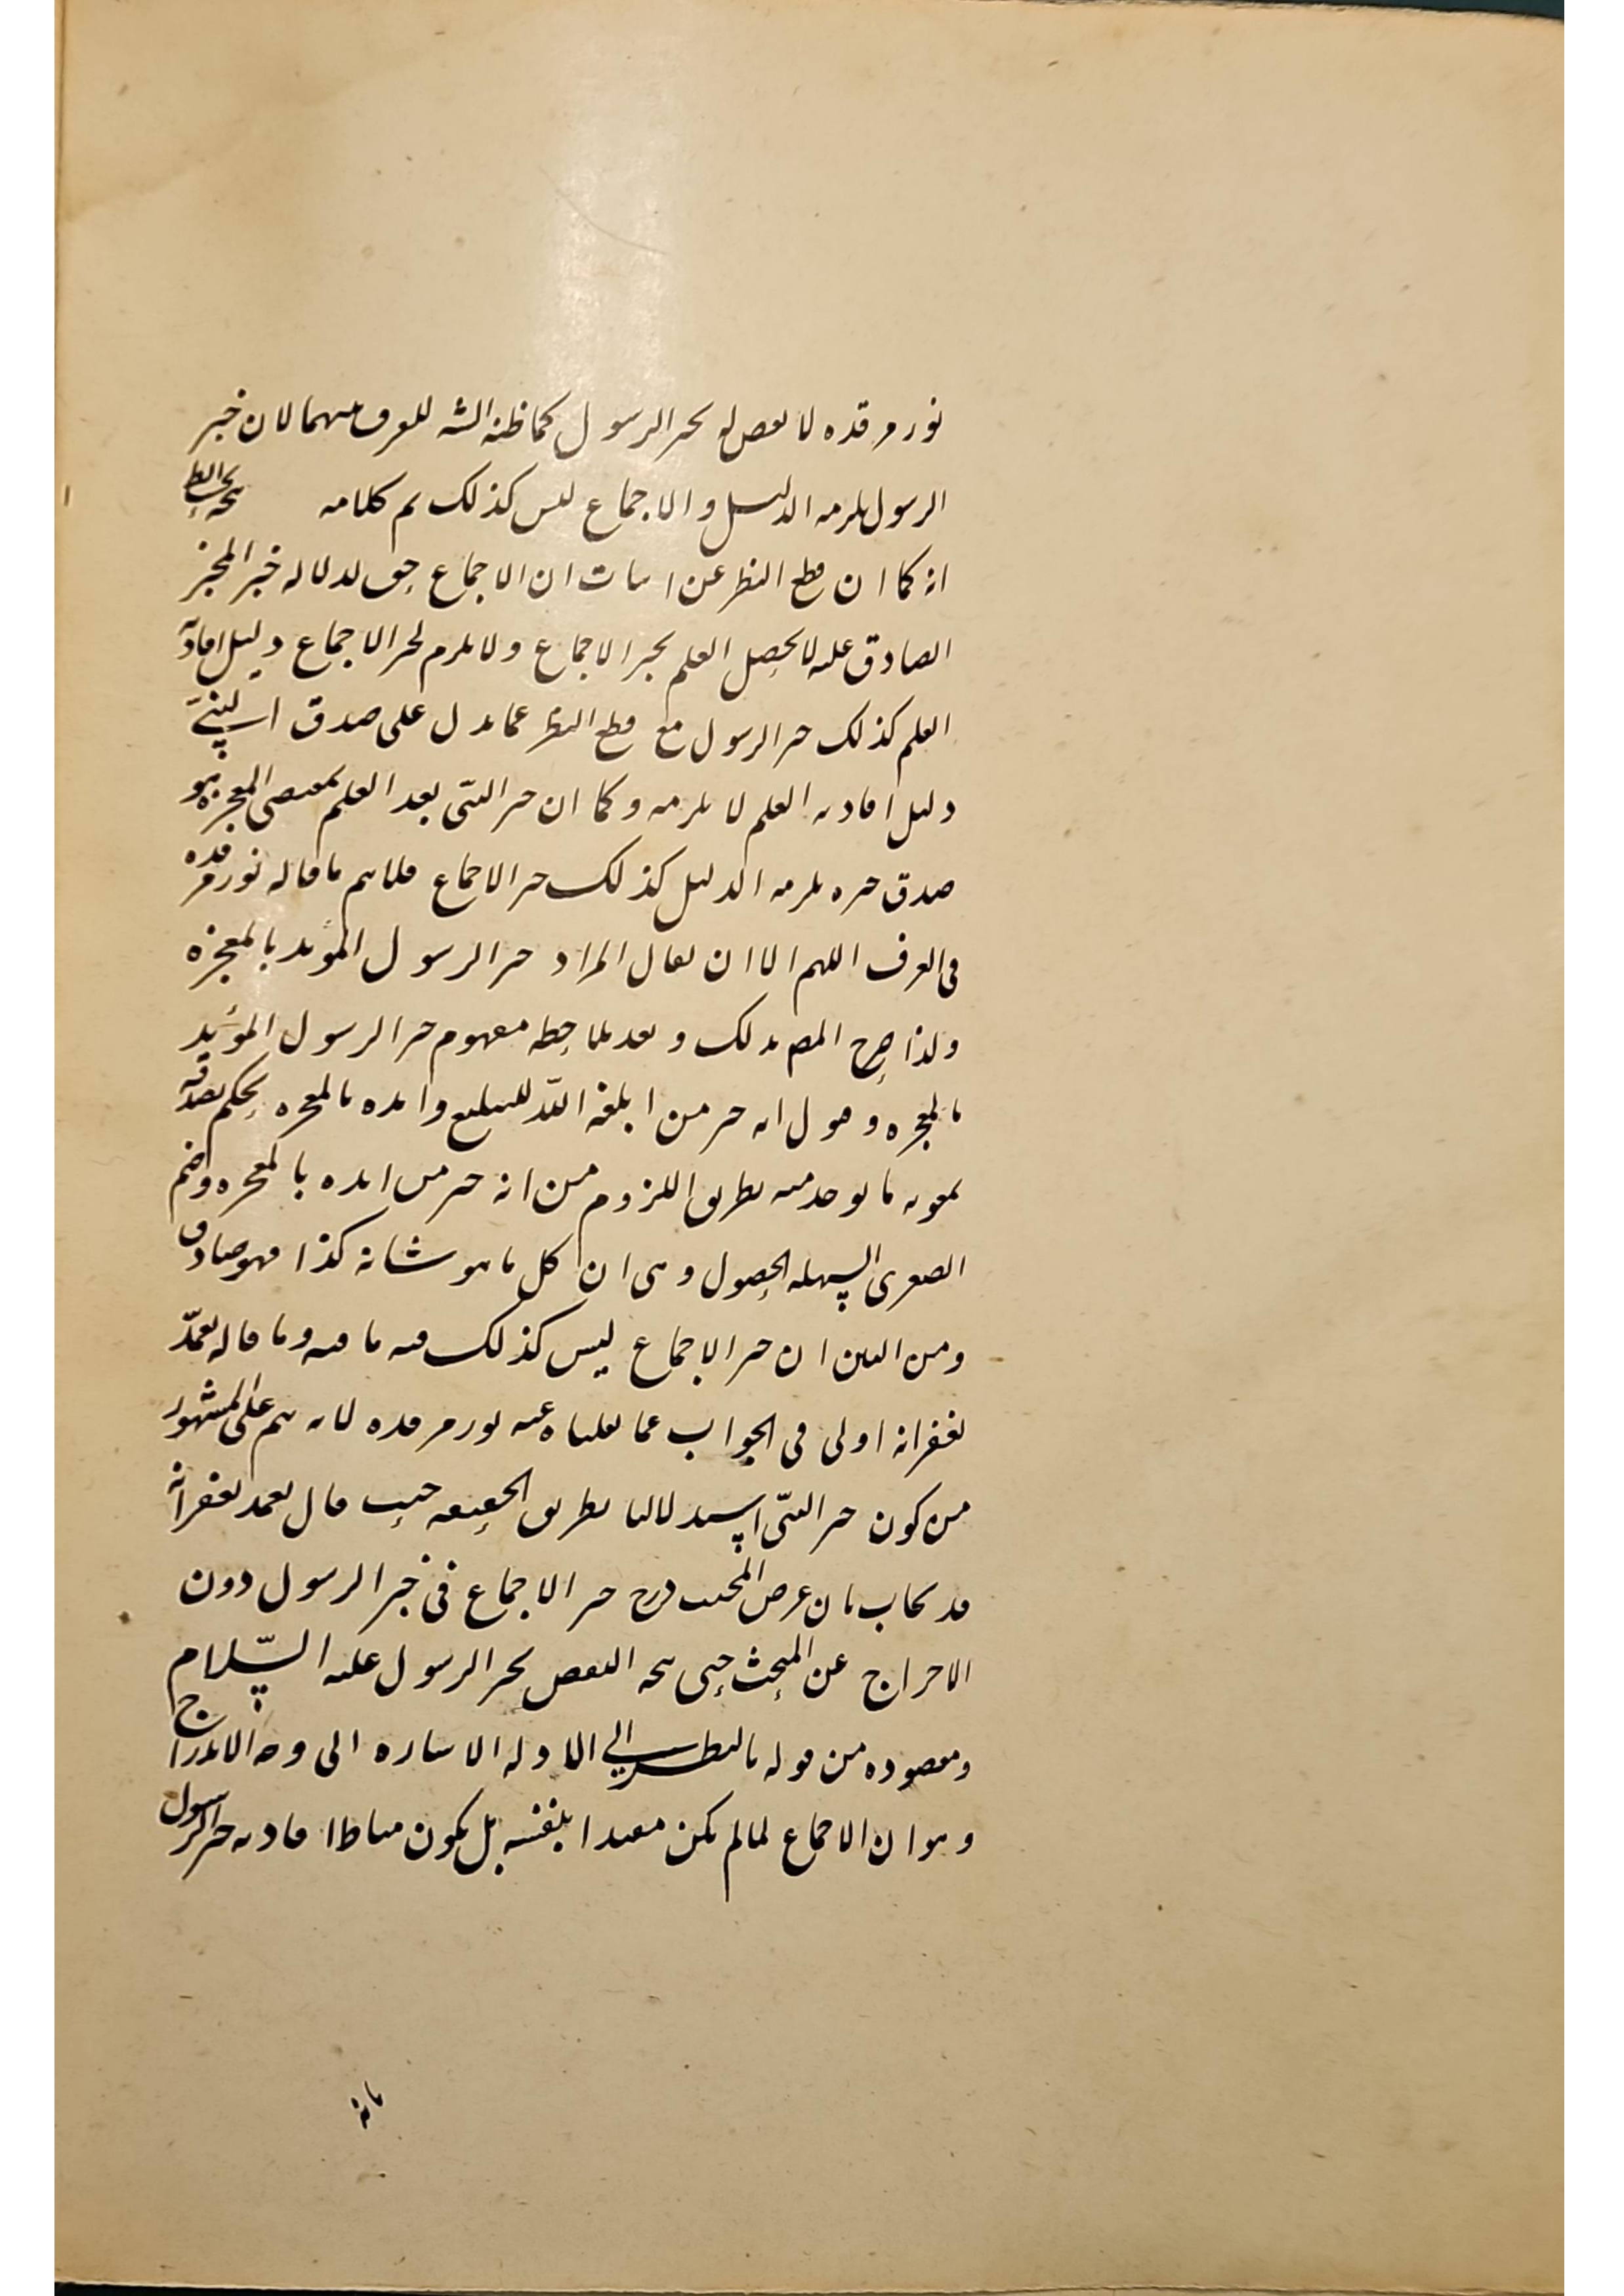 نور مرقده لا نقض له بخبر الرسول كما ظنه الشه للفرق بينهما لان خبر
الرسول يلزمه الدليل والاجماع ليس كذلك تم كلامه
انه كما ان قطع النظر عن اثبات ان الاجماع حق لدلالة خبر المخبر
الصادق عليه لا يحصل العلم بخبر الاجماع ولا يلزم لخبر الاجماع دليل افادته
العلم كذلك خبر الرسول مع قطع النظر عما يدل على صدق النبى
دليل افادته العلم لا يلزمه وكما ان خبر النبّى بعد العلم بمقتضى المعجزه هو
صدق خبره يلزمه الدليل كذلك خبر الاجماع فلا يتم ما قاله نور مرقده
فى الفرق اللهم الا ان يقال المراد خبر الرسول المويد بالمعجزه
ولذا صرح المصه بذلك وبعد ملاحظه مفهوم خبر الرسول المؤيد
بالمعجزه وهو انه خبر من ابلغه اللّه للتبليغ وايده بالمعجزه يحكم بصدقه
بمعونه ما يوخذ منه بطريق اللزوم من انه خبر من ايده بالمعجزه وضم
الصغرى السهله الحصول وهى ان كل ما هو شانه كذا فهو صادق
ومن البين ان خبر الاجماع ليس كذلك فيه ما فيه وما قاله تغمدّ
بغفرانه اولى فى الجواب عما نقلناه عنه نور مرقده لانه يتم على المشهور
من كون خبر النبّى استدلاليا بطريق الحقيقه حيث قال تغمد بغفرانه
قد يجاب بان غرض المجيب درج خبر الاجماع فى خبر الرسول دون
الاخراج عن المبحث حتى يتجه النقض بخبر الرسول عليه السّلام
ومقصوده من قوله بالنظر الى الادله الاشاره الى وجه الاندراج
وهو ان الاجماع لما لم يكن مفيدا بنفسه بل يكون مناط افادته خبر الرسول
بانه